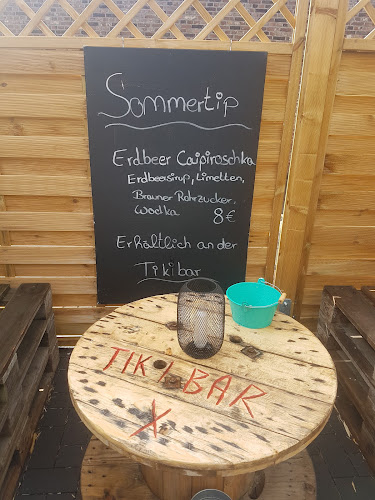 Sommertip
Erdbeer Caipiraschka
Erdbeersirup, Limetten,
Brauner Rohrzucker,
Wodka 8€
Erhältlich an der
Tikibar
TIKIBAR
X